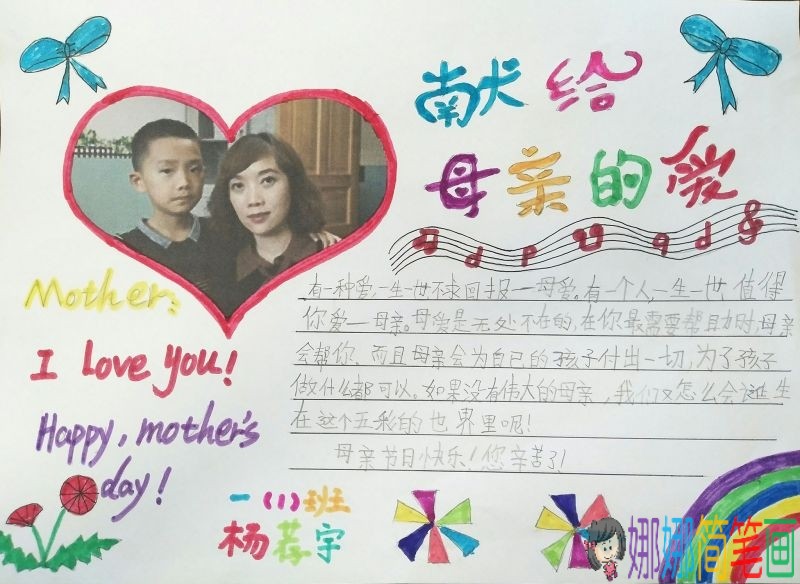 献给
母亲的爱
Mother:
I Love you!
Happy, mother's
day!
有一种爱,一生一世不求回报——母爱。有一个人,一生一世,值得
你爱——母亲。母爱是无处不在的,在你最需要帮助时,母亲
会帮你、而且母亲会为自已的孩子付出一切,为了孩子
做什么都可以。如果没有伟大的母亲,我们又怎么会诞生
在这个五彩的世界里呢!
母亲节日快乐!您辛苦了!
一(1)班
杨荐宇
娜娜简笔画